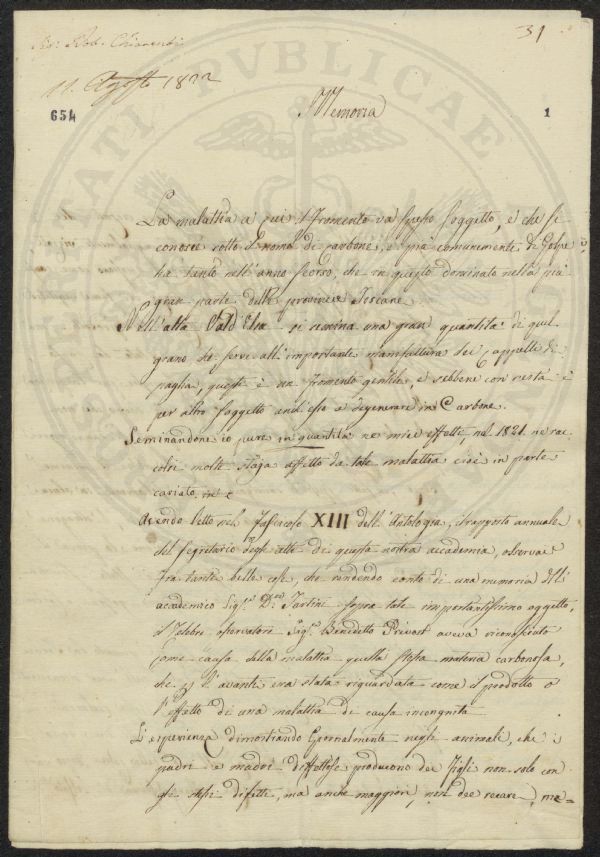 31
Sig: Rob. Chiarenti
11. Agosto 1822
654
1
Memoria
La malattia a cui il Fromento va spesso soggetto, e che si
conosce sotto il nome di carbone, e più comunemente di Golpe
ha tanto nell'anno scorso, che in questo dominato nella più
gran parte delle provincie Toscane.
Nell'alta Val d'Elsa si semina una gran quantità di quel
grano che serve all'importante manifattura dei Cappelli di
paglia, questi è un Fromento gentile, e sebbene con resta è
per altro soggetto anch'esso a degenerare in Carbone.
Seminandone io pure in quantità ne' miei effetti nel 1821. ne rac-
colsi molte staja affetto da tale malattia cioè in parte
cariato.
Avendo letto nel Fascicolo XIII dell'Antologia, il rapporto annuale
del Segretario degli atti di questa nostra accademia, osservai
fra tante belle cose, che rendendo conto di una memoria dell'
accademico Sigr. Dre. Tartini sopra tale importantissimo oggetto,
il celebre osservatore Sigr. Benedetto Prevost aveva riconosciuto
come causa della malattia quella stessa materia carbonosa,
che per l'avanti era stata riguardata come il prodotto o
l'effetto di una malattia di causa incognita
L'esperienza dimostrando Giornalmente negli animali, che i
padri e madri difettose producono dei Figli non solo con
gli stessi difetti, ma anche maggiori, non dee recare, me=